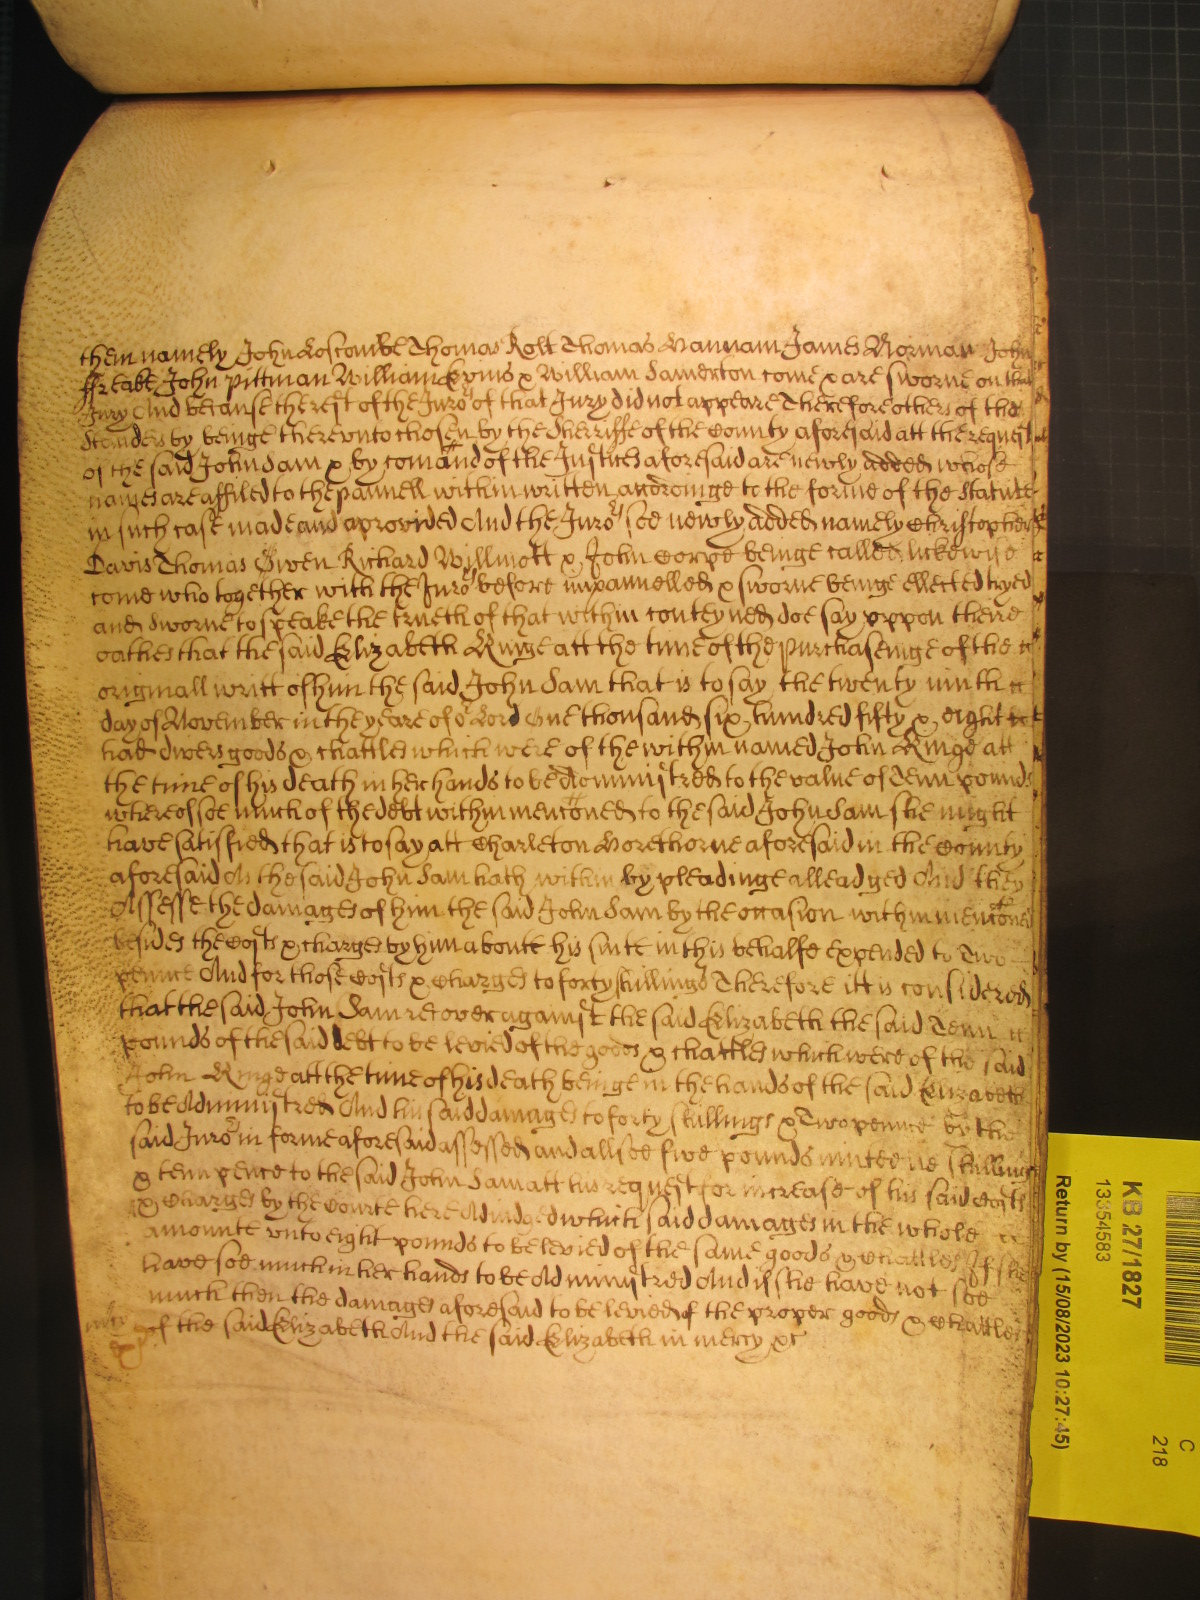 them namely John Loscombe Thomas Rolt Thomas Vannam James Norman John
ffreake John Pittman William Eyms & William Samerton come & are sworne on that
Jury And because the rest of the Juro's of that Jury did not appeare Therefore others of the
Standers by beinge therevnto chosen by the Sherriffe of the County aforesaid att the request
of the said John Sam & by comand of the Justices aforesaid are newly added whose
names are affiled to the pannell within written accordinge to the forme of the Statute
in such case made and aprovided And the Juro's soe newly added namely Christopher
Davis Thomas Owen Richard Willmott & John Corpe beinge called lickewise
come who together with the Juro's before impannelled & sworne beinge ellected tryed
and sworne to speake the trueth of that within conteyned doe say vppon theire
oathes that the said Elizabeth Ringe att the time of the purchaseinge of the
originall writt of him the said John Sam that is to say the twenty ninth
day of November in the yeare of or Lord One thousand six hundred fifty & eight
had divers goods & chattles which were of the within named John Ringe att
the time of his death in her hands to be Administred to the value of Tenn pounds
whereof soe much of the debt within menconed to the said John Sam she might
have satisfied that is to say att Charleton Morethorne aforesaid in the County
aforesaid As the said John Sam hath within by pleadinge alleadged And they
Assesse the damages of him the said John Sam by the occasion within menconed
besides the Costs & charges by him aboute his suite in this behalfe expended to Two
pennce And for those Costs & Charges to forty shillings Therefore itt is considered
that the said John Sam recover against the said Elizabeth the said Tenn
pounds of the said debt to be levied of the goods & chattles which were of the said
John Ringe att the time of his death beinge in the hands of the said Elizabeth
to be Administred And his said damages to forty shillings & Two pennce by the
said Juro's in forme aforesaid assessed and allsoe five pounds nineteene shillings
& tenn pence to the said John Sam att his request for increase of his said Costs
& Charges by the Courte here Adiudged which said damages in the whole
amounte vnto eight pounds to be levied of the same goods & Chattles If she
have soe much in her hands to be Administred And if she have not soe
much then the damages aforesaid to be levied of the proper goods & Chattles
of the said Elizabeth And the said Elizabeth in mercy &c
KB 27/1827
13354583
Return by (15/08/2023 10:27:45)
C
218